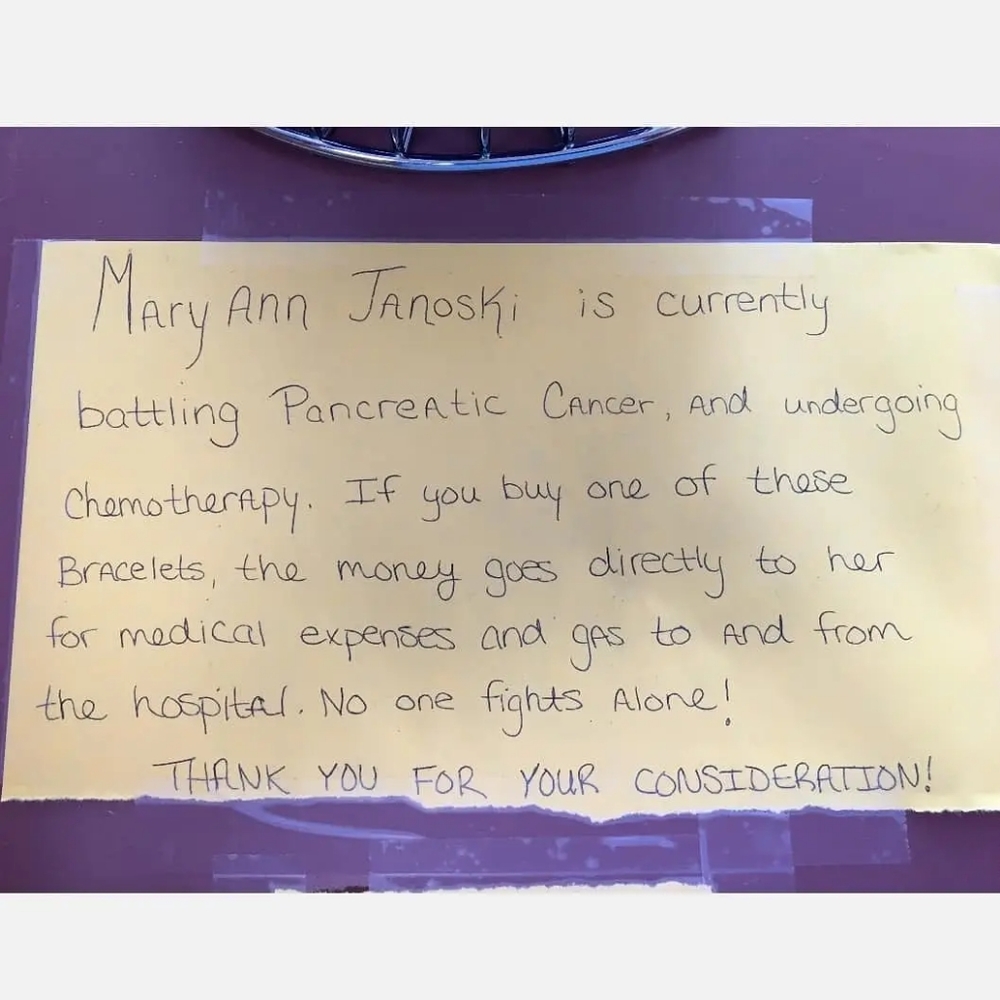 Mary Ann Janoski is currently
battling Pancreatic Cancer, and undergoing
Chemotherapy. If you buy one of these
Bracelets, the money goes directly to her
for medical expenses and gas to and from
the hospital. No one fights Alone!
THANK YOU FOR YOUR CONSIDERATION!